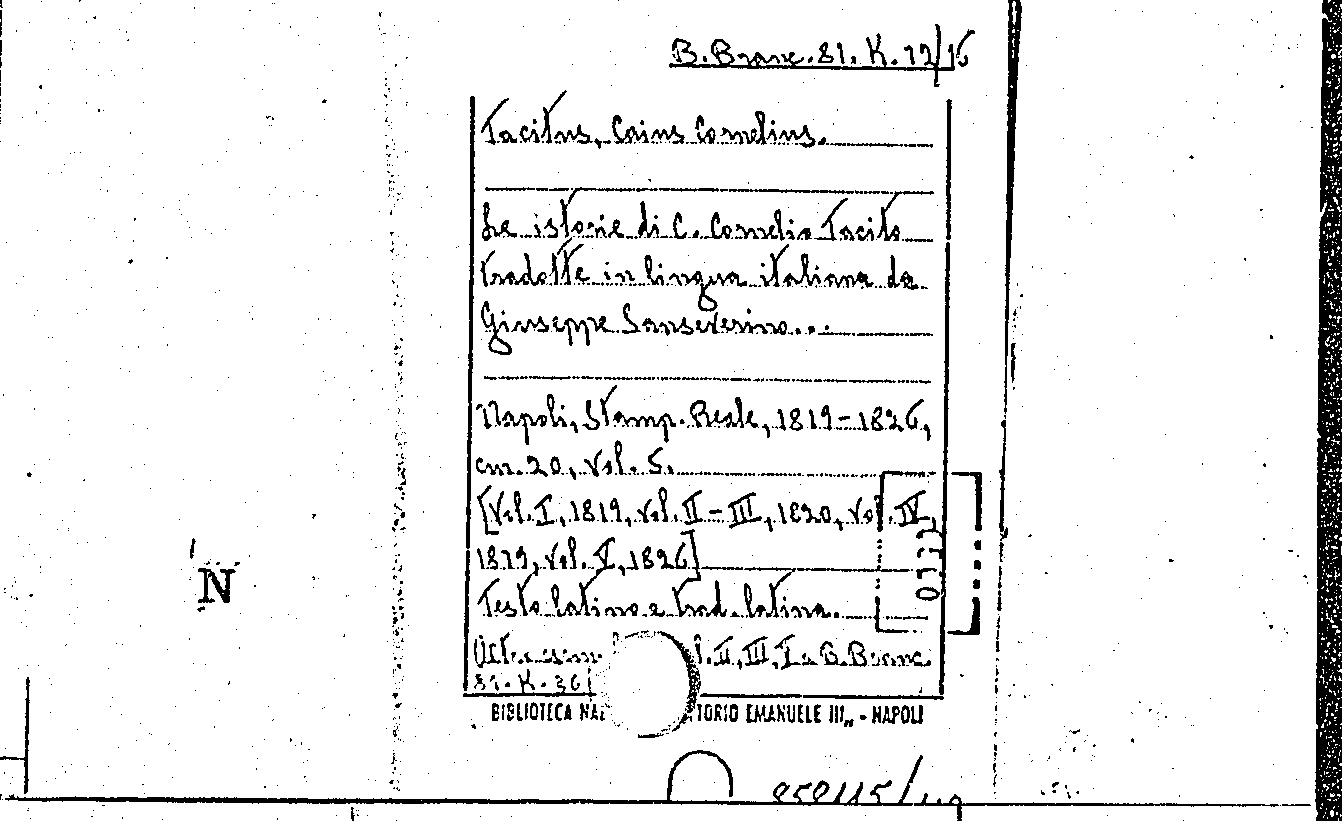 B. Branc. 81. K. 12/16
Tacitus, Caius Cornelius.
Le istorie di C. Cornelio Tacito
tradotte in lingua italiana da
Giuseppe Sanseverino...
Napoli, Stamp. Reale, 1819-1826,
cm. 20, vol. 5.
[Vol. I, 1819, vol. II-III, 1820, vol. IV,
1819, vol. V, 1826]
Testo latino e trad. latina.
Altro esem. II, III, B. Branc.
81. K. 36
N
BIBLIOTECA NAZ TORIO EMANUELE III,, - NAPOLI